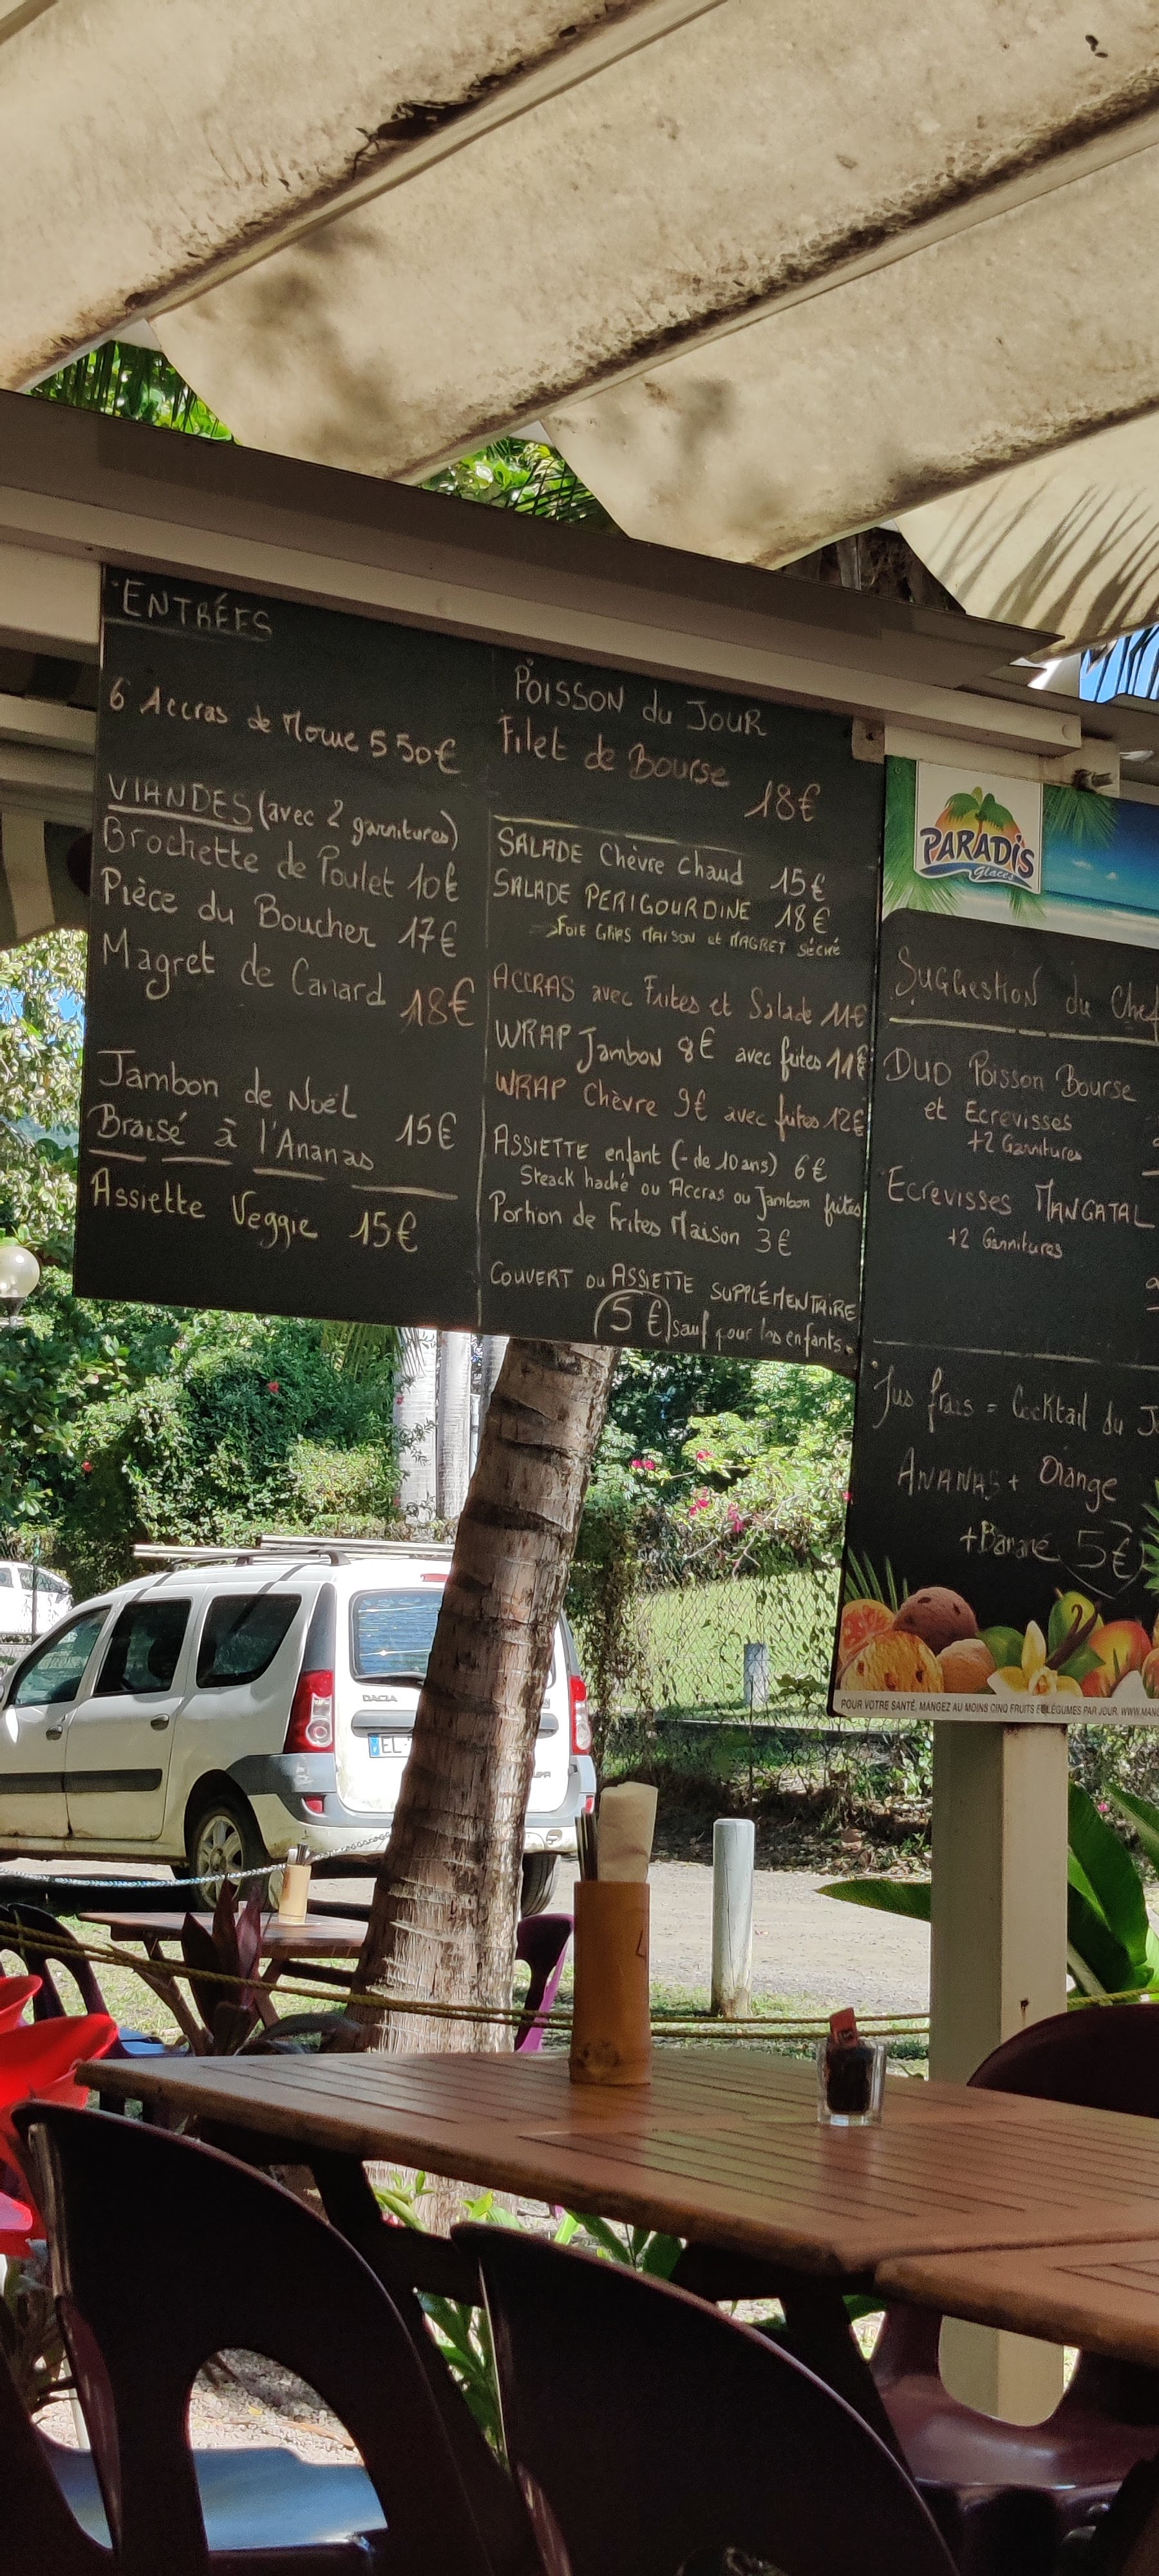 ENTRÉES
6 Accras de Morue 5.50€
VIANDES (avec 2 garnitures)
Brochette de Poulet 10€
Pièce du Boucher 17€
Magret de Canard
18€
Jambon de Noël
Braisé à l'Ananas 15€
Assiette Veggie 15€
POISSON du JOUR
Filet de Bourse
18€
SALADE Chèvre chaud 15€
SALADE PERIGOURDINE 18€
->FOIE GRAS MAISON et MAGRET séché
ACCRAS avec Frites et Salade 11€
WRAP Jambon 8€ avec frites 11€
WRAP Chèvre 9€ avec frites 12€
ASSIETTE enfant (- de 10 ans) 6€
Steack haché ou Accras ou Jambon frites
Portion de frites Maison 3€
COUVERT ou ASSIETTE SUPPLÉMENTAIRE
5€ sauf pour les enfants.
PARADIS
Glaces
SUGGESTION du Chef
DUO Poisson Bourse
et Ecrevisses
+2 Garnitures
Ecrevisses MANGATAL
+2 Garnitures
Jus frais = Cocktail du
ANANAS + Orange
+ Banane 5€
POUR VOTRE SANTÉ, MANGEZ AU MOINS CINQ FRUITS ET LÉGUMES PAR JOUR.
DACIA
EL